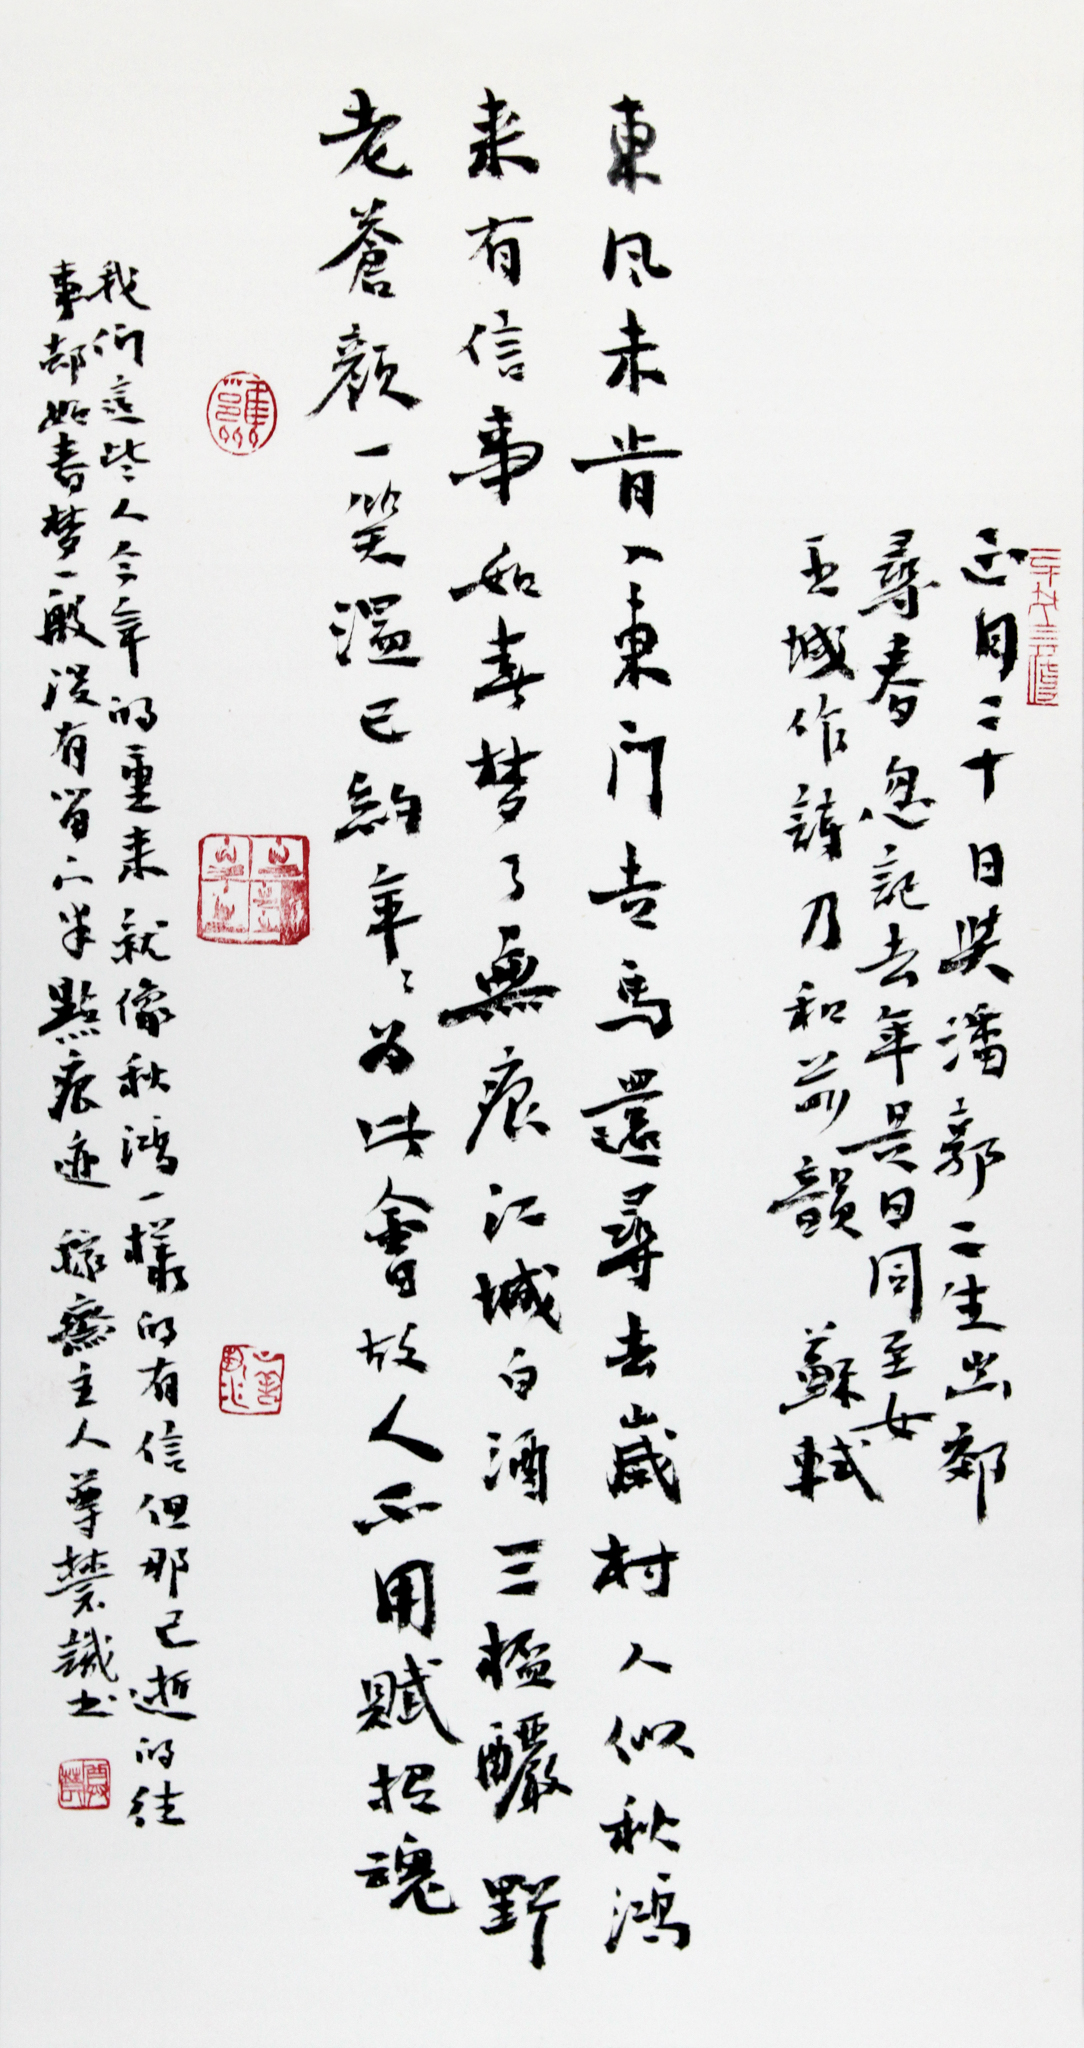 正月二十日與潘郭二生出郊
尋春忽記去年是日同至女
王城作詩乃和前韻 蘇軾
東风未肯入東门去馬還尋去歲村人似秋鴻
来有信事如春梦了無痕江城白酒三杯釅野
老蒼顏一笑温已約年々为此會故人不用賦招魂
我们這些人今年的重来就像秋鴻一樣的有信但那已逝的往
事却如春梦一般没有留下半點痕迹 齋主人尊 識书